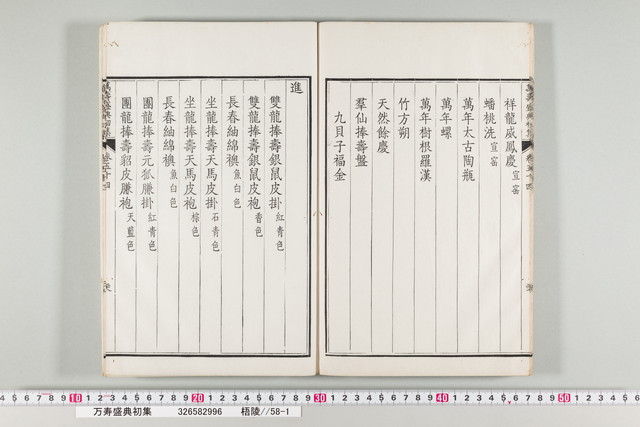 祥龍威鳳慶宣窑
蟠桃洗宣窑
萬年太古陶瓶
萬年螺
萬年樹根羅漢
竹方朔
天然餘慶
羣仙捧壽盤
九貝子福金
進
雙龍捧壽銀鼠皮掛紅青色
雙龍捧壽銀鼠皮袍香色
長春紬綿襖魚白色
坐龍捧壽天馬皮掛石青色
坐龍捧壽天馬皮袍棕色
長春紬綿襖魚白色
團龍捧壽元狐膁掛紅青色
團龍捧壽貂皮膁袍天藍色
10 20 30 40 50
万寿盛典初集 326582996 梧陵//58-1